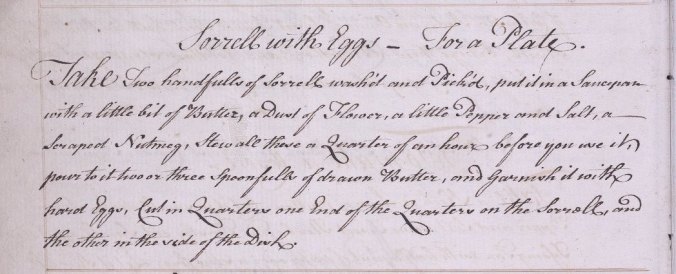 Sorrell with Eggs – For a Plate.
Take Two handfulls of Sorrell wash'd and Pick'd, put it in a Saucepan
with a little bit of Butter, a Dust of Flower, a little Pepper and Salt, a
Scraped Nutmeg, Stew all these a Quarter of an hour before you use it,
pour to it two or three Spoonfulls of drawn Butter, and Garnish it with
hard Eggs, Cut in Quarters one End of the Quarters on the Sorrell, and
the other in the side of the Dish.